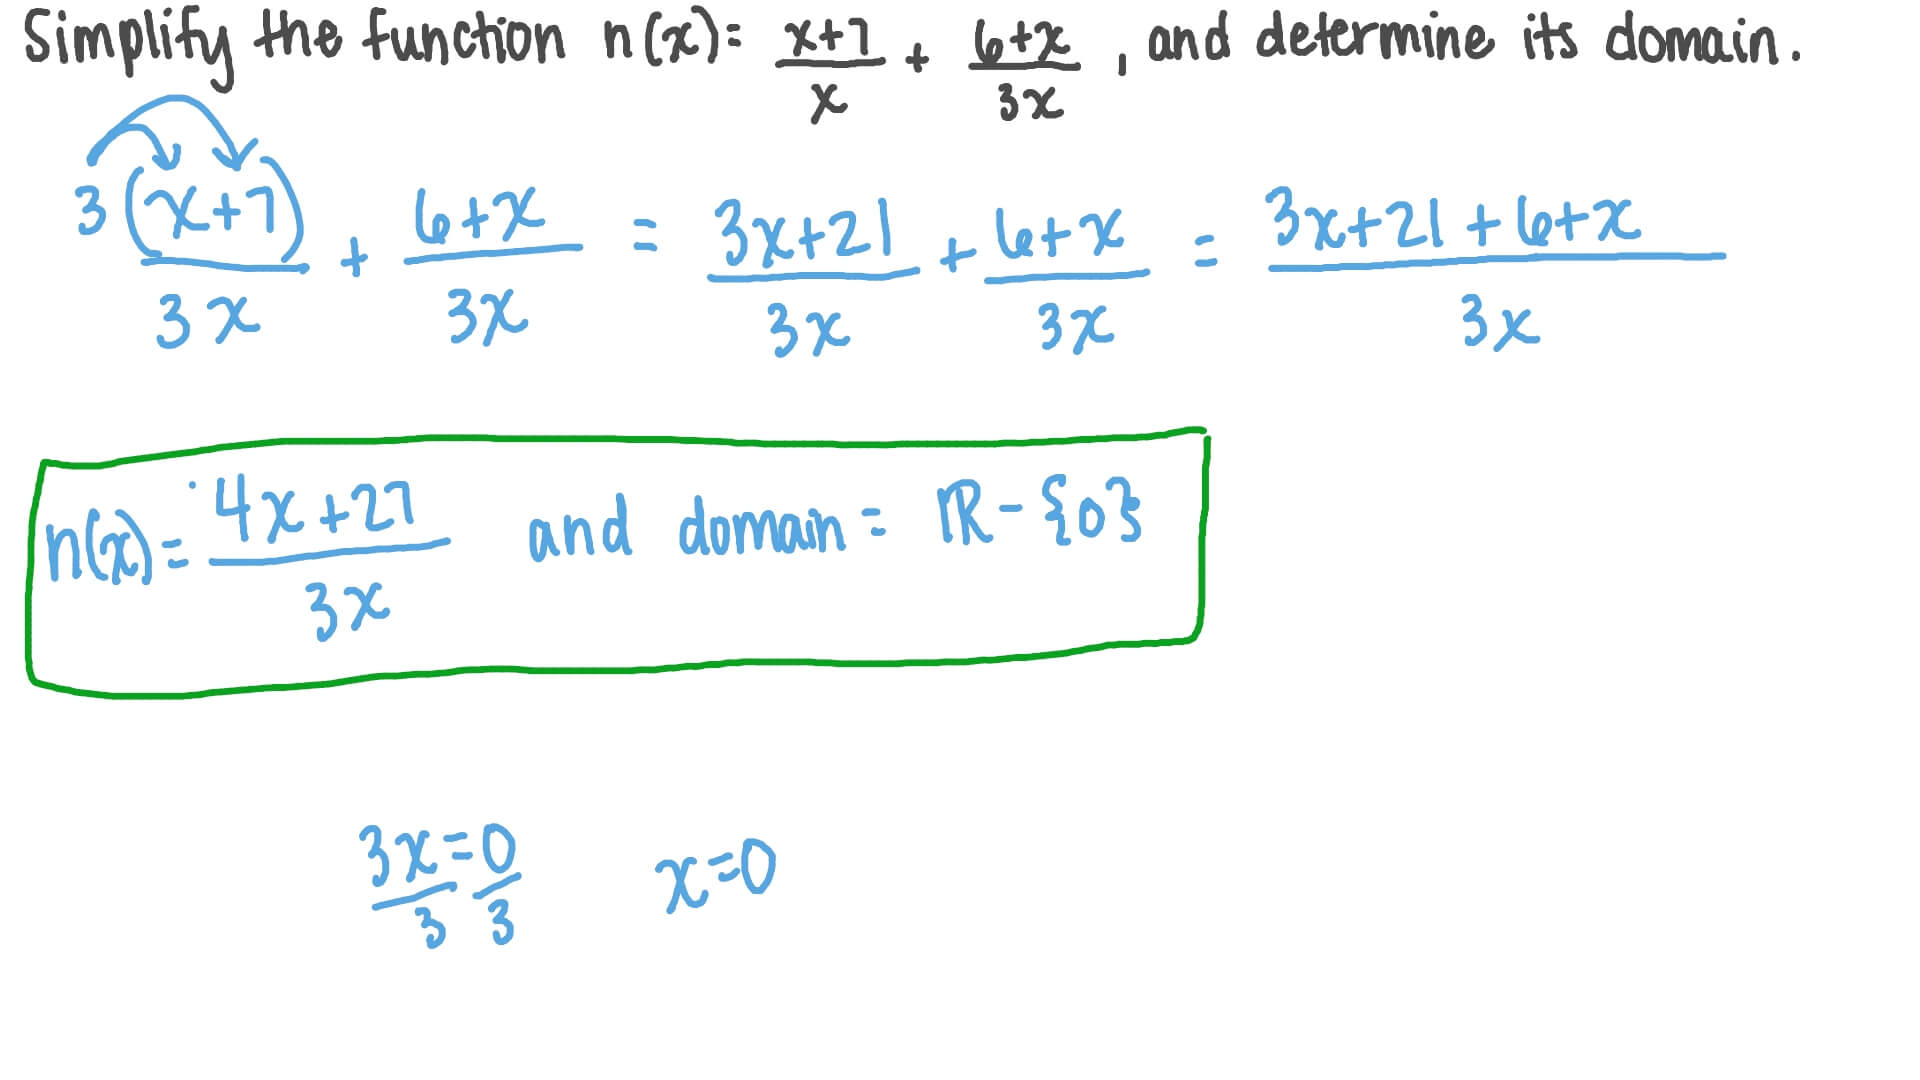 Simplify the function n(x) = (x+7)/x + (6+x)/3x, and determine its domain.
3(x+7)/3x + (6+x)/3x = (3x+21)/3x + (6+x)/3x = (3x+21+6+x)/3x
n(x) = (4x+27)/3x and domain = ℝ-{0}
3x/3 = 0/3 x=0